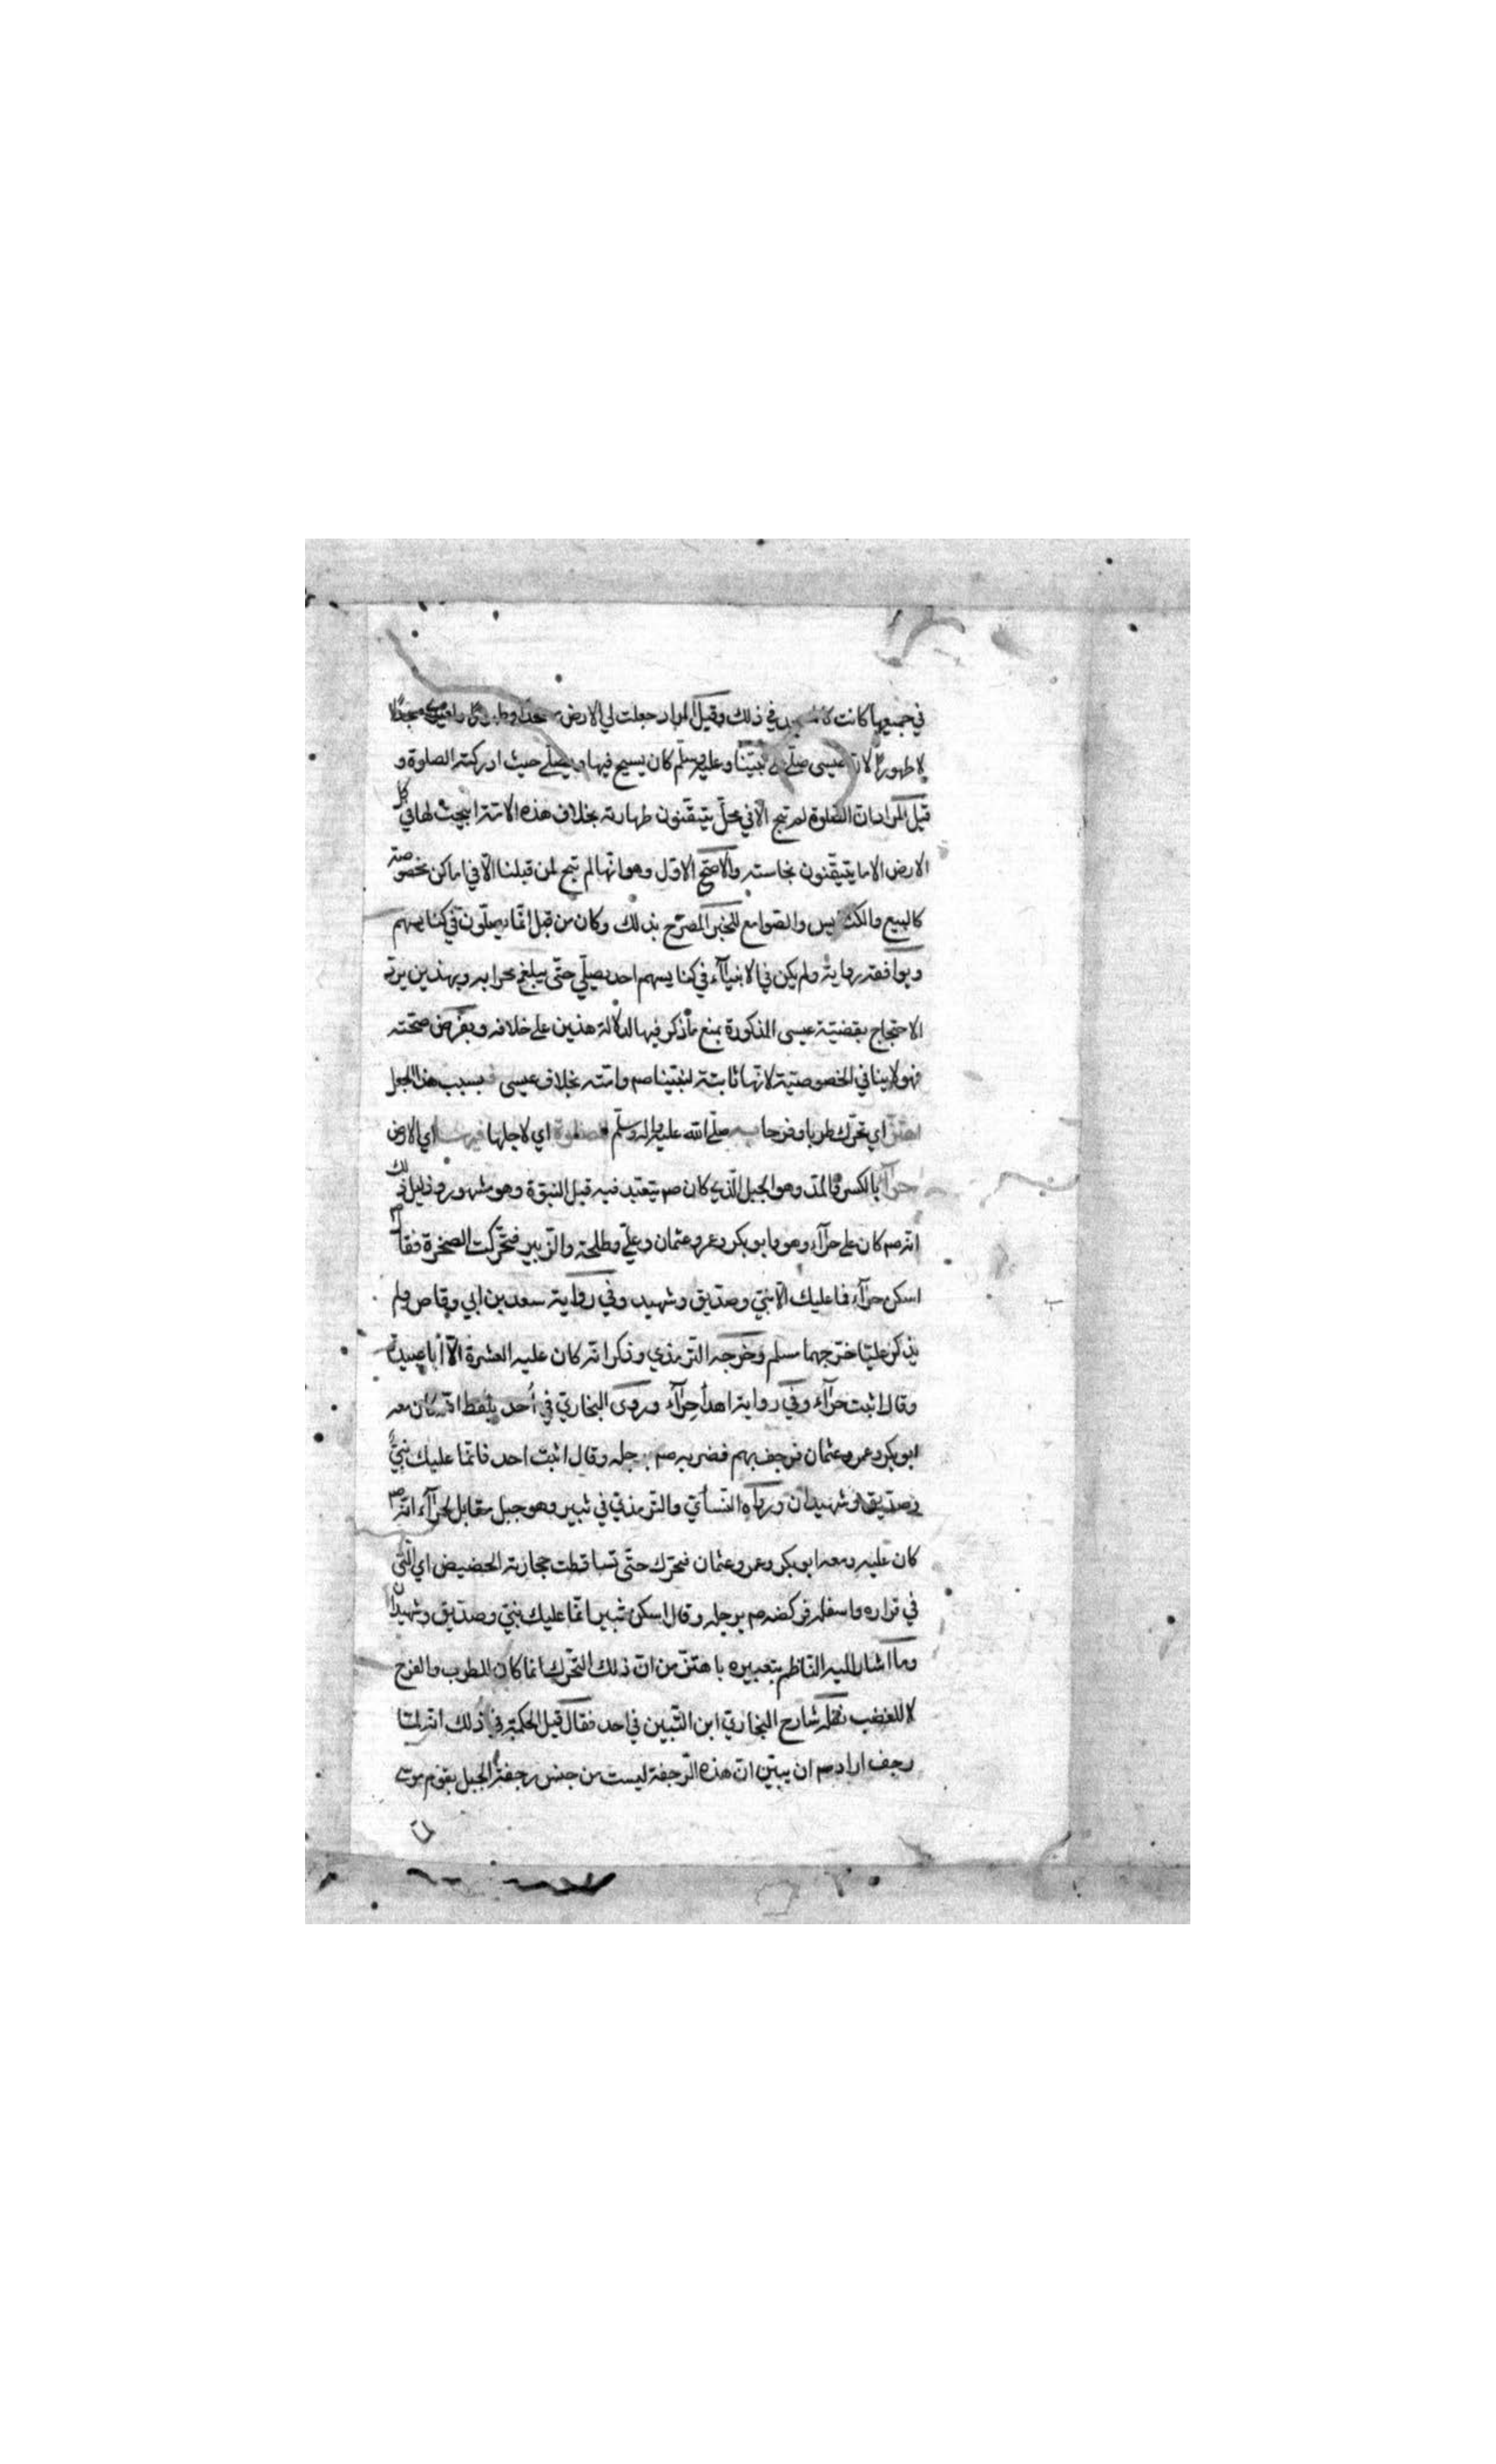 في جميعها كانت كالمسجد في ذلك وقيل المراد جعلت لي الارض مسجدا وطهورا مسجدا
لا طهورا لان عيسى صلى على نبينا وعليه وسلم كان يسيح فيها ويصلي حيث ادركته الصلوة و
قيل المراد ان الصلوة لم تبح الا في محل يتيقنون طهارته بخلاف هذه الامة ابيحت لها في كل
الارض الا ما يتيقنون نجاسته والاصح الاول وهو انها لم تبح لمن قبلنا الا في اماكن مخصوصة
كالبيع والكنائس والصوامع للخبر المصرح بذلك وكان من قبل انما يصلون في كنايسهم
ويوافقه رواية ولم يكن في الانبياء في كنايسهم احد يصلي حتى يبلغ محرابه وبهذين يرد
الاحتجاج بقضية عيسى المذكورة بمنع ما ذكر فيها لدلالة هذين على خلافه وبفرض صحته
فهو لا ينافي الخصوصية لانها ثابتة لنبينا صم وامته بخلاف عيسى بسبب هذا الجعل
اهتز اي تحرك طربا وفرحا به صلى الله عليه واله وسلم للصلوة اي لاجلها فيها اي الارض
حراء بالكسر والمد وهو الجبل الذي كان صم يتعبد فيه قبل النبوة وهو مشهور ودليل ذلك
انه صم كان على حراء وهو وابو بكر وعمر وعثمان وعلي وطلحة والزبير فتحركت الصخرة فقال صم
اسكن حراء فما عليك الا نبي وصديق وشهيد وفي رواية سعد بن ابي وقاص ولم
يذكر عليا خرجهما مسلم وخرجه الترمذي وذكر انه كان عليه العشرة الا أبا عبيدة
وقال اثبت حراء وفي رواية اهدأ حراء وروى البخاري في أحد بلفظ انه كان معه
ابو بكر وعمر وعثمان فرجف بهم فضربه صم برجله وقال اثبت احد فانما عليك نبي
وصديق وشهيدان ورواه النسأي والترمذي في ثبير وهو جبل مقابل لحراء انه صم
كان عليه ومعه ابو بكر وعمر وعثمان فتحرك حتى تساقطت حجارته الحضيض اي التي
في قراره واسفله فركضه صم برجله وقال اسكن ثبير انما عليك نبي وصديق وشهيدان
وما اشار اليه الناظم بتعبيره باهتز من ان ذلك التحرك انما كان للطرب والفرح
لا للغضب نقله شارح البخاري ابن التبين في احد فقال قيل الحكمة في ذلك انه لما
رجف اراد صم ان يبين ان هذه الرجفة ليست من جنس رجفة الجبل بقوم موسى
لما